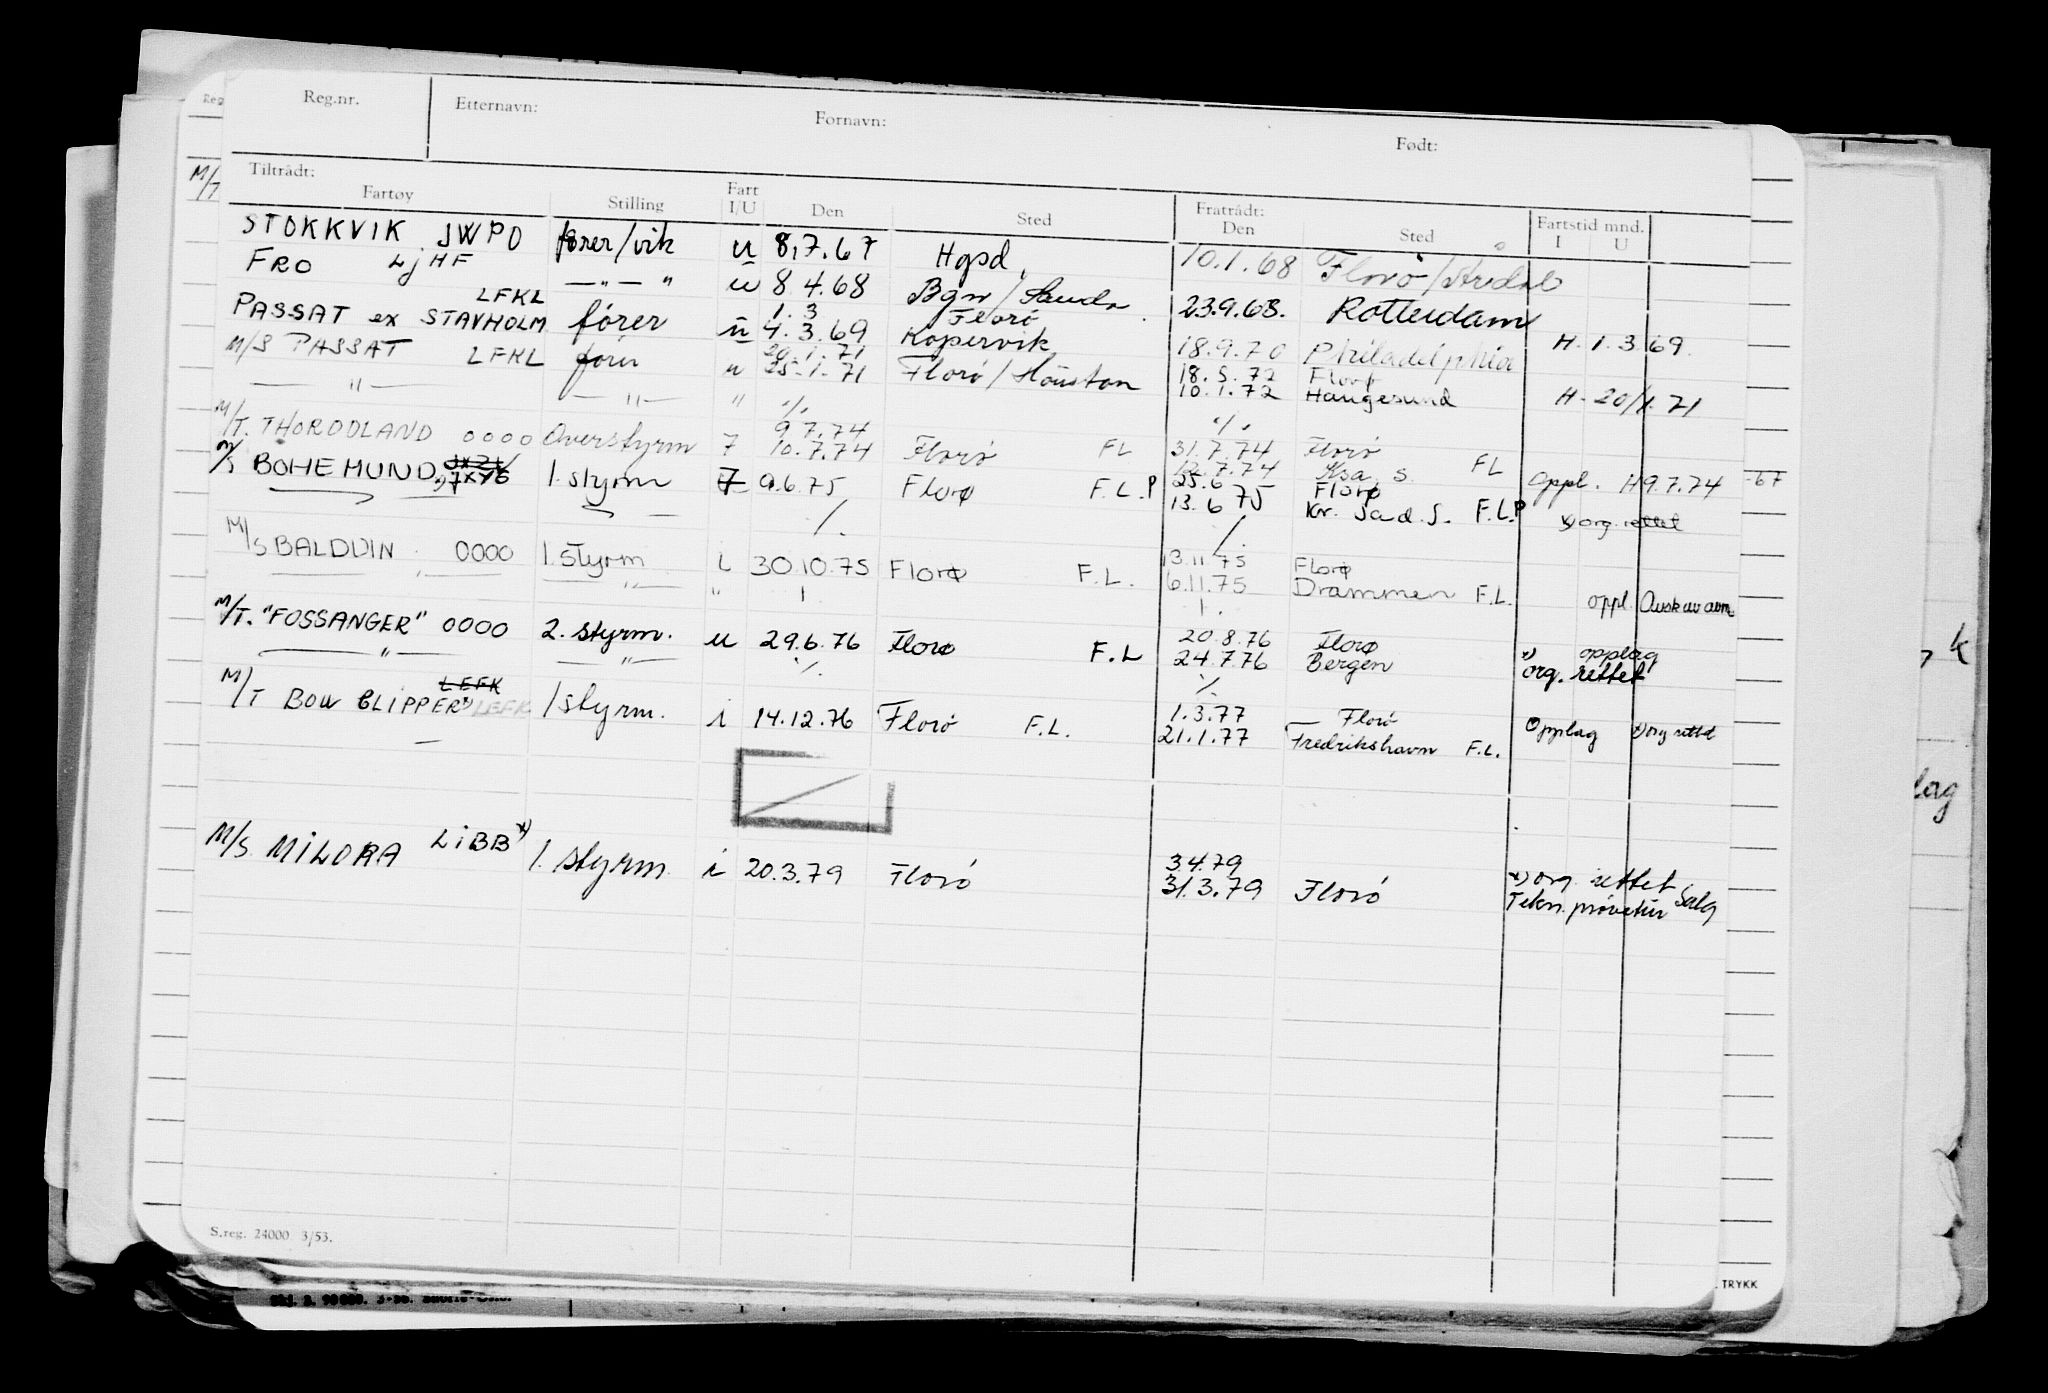 Reg.nr. Etternavn: Fornavn: Født:
Tiltrådt: Fratrådt:
Fartøy Stilling Fart I/U Den Sted Den Sted Fartstid mnd. I U
STOKKVIK JWPD fører/vik u 8.7.67 Hgsd. 10.1.68 Florø/Årdal
FRO LjHF — " — " u 8 4.68 Bgn/Sauda 23.9.68. Rotterdam
LFKL 1.3 Florø
PASSAT ex STAVHOLM fører u 4.3.69 Kopervik 18.9.70 Philadelphia H. 1.3.69.
20.1.71 18.5.72 Florø
M/S PASSAT LFKL fører u 25.1.71 Florø/Houston 10.1.72 Haugesund H. 20/1.71
— " — — " — " ./. ./.
9.7.74 31.7.74 Florø
M/T. THORODLAND 0000 Overstyrm 7 10.7.74 Florø FL 12.7.74 Ksa. S. FL oppl. H9.7.74 -67
25.6 Florø
M/S BOHEMUND 1. styrm 7 9.6.75 Florø F.L.P 13.6 75 Kr. Sad. S. F.L.P x) org. rettet
./. ./.
13.11 75 Florø
M/S BALDUIN 0000 1. styrm i 30.10.75 Florø F.L. 6.11.75 Drammen F.L. oppl.
— " — — " — "
20.8.76 Florø x) opplag
M/T. "FOSSANGER" 0000 2. styrm. u 29.6.76 Florø F.L 24.7.76 Bergen org. rettet
— " — — " — ./. ./.
LEFK 1.3.77 Florø
M/T BOW CLIPPER x) LEFK 1 styrm. i 14.12.76 Florø F.L. 21.1.77 Fredrikshavn F.L. Opplag x) org rettet
3.4.79
M/S. MILORA LiBB x) 1. styrm. i 20.3.79 Florø 31.3.79 Florø x) org. rettet
Tekn. prøvetur Salg
S.reg. 24000 3/53.
TRYKK